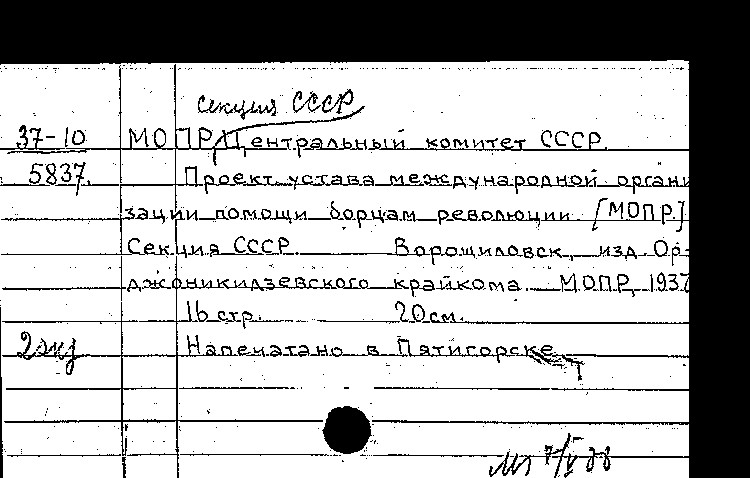 секция СССР
37-10 МОПР. Центральный комитет СССР.
5837. Проект устава международной органи
зации помощи борцам революции [МОПР]
Секция СССР. Ворошиловск, изд. Ор-
джоникидзевского крайкома МОПР, 1937
16 стр. 20 см.
2 экз Напечатано в Пятигорске